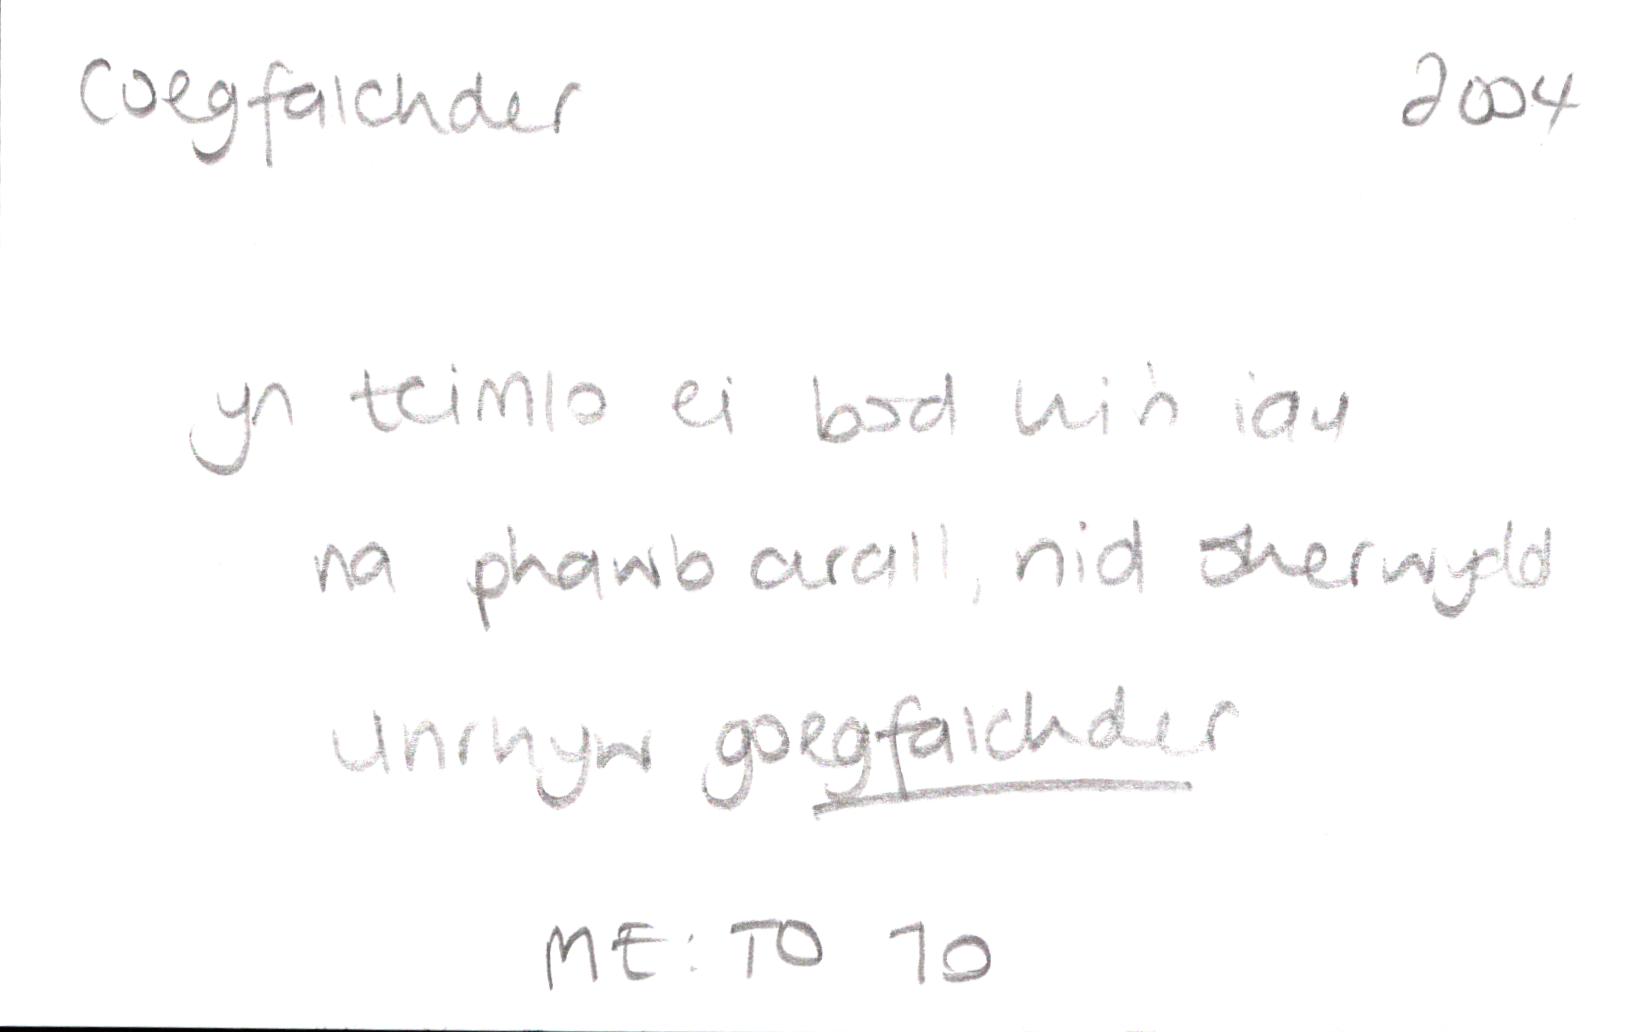 Coegfalchder 2004
yn teimlo ei bod hi'n iau
na phawb arall, nid oherwydd
unrhyw goegfalchder
ME: TO 70